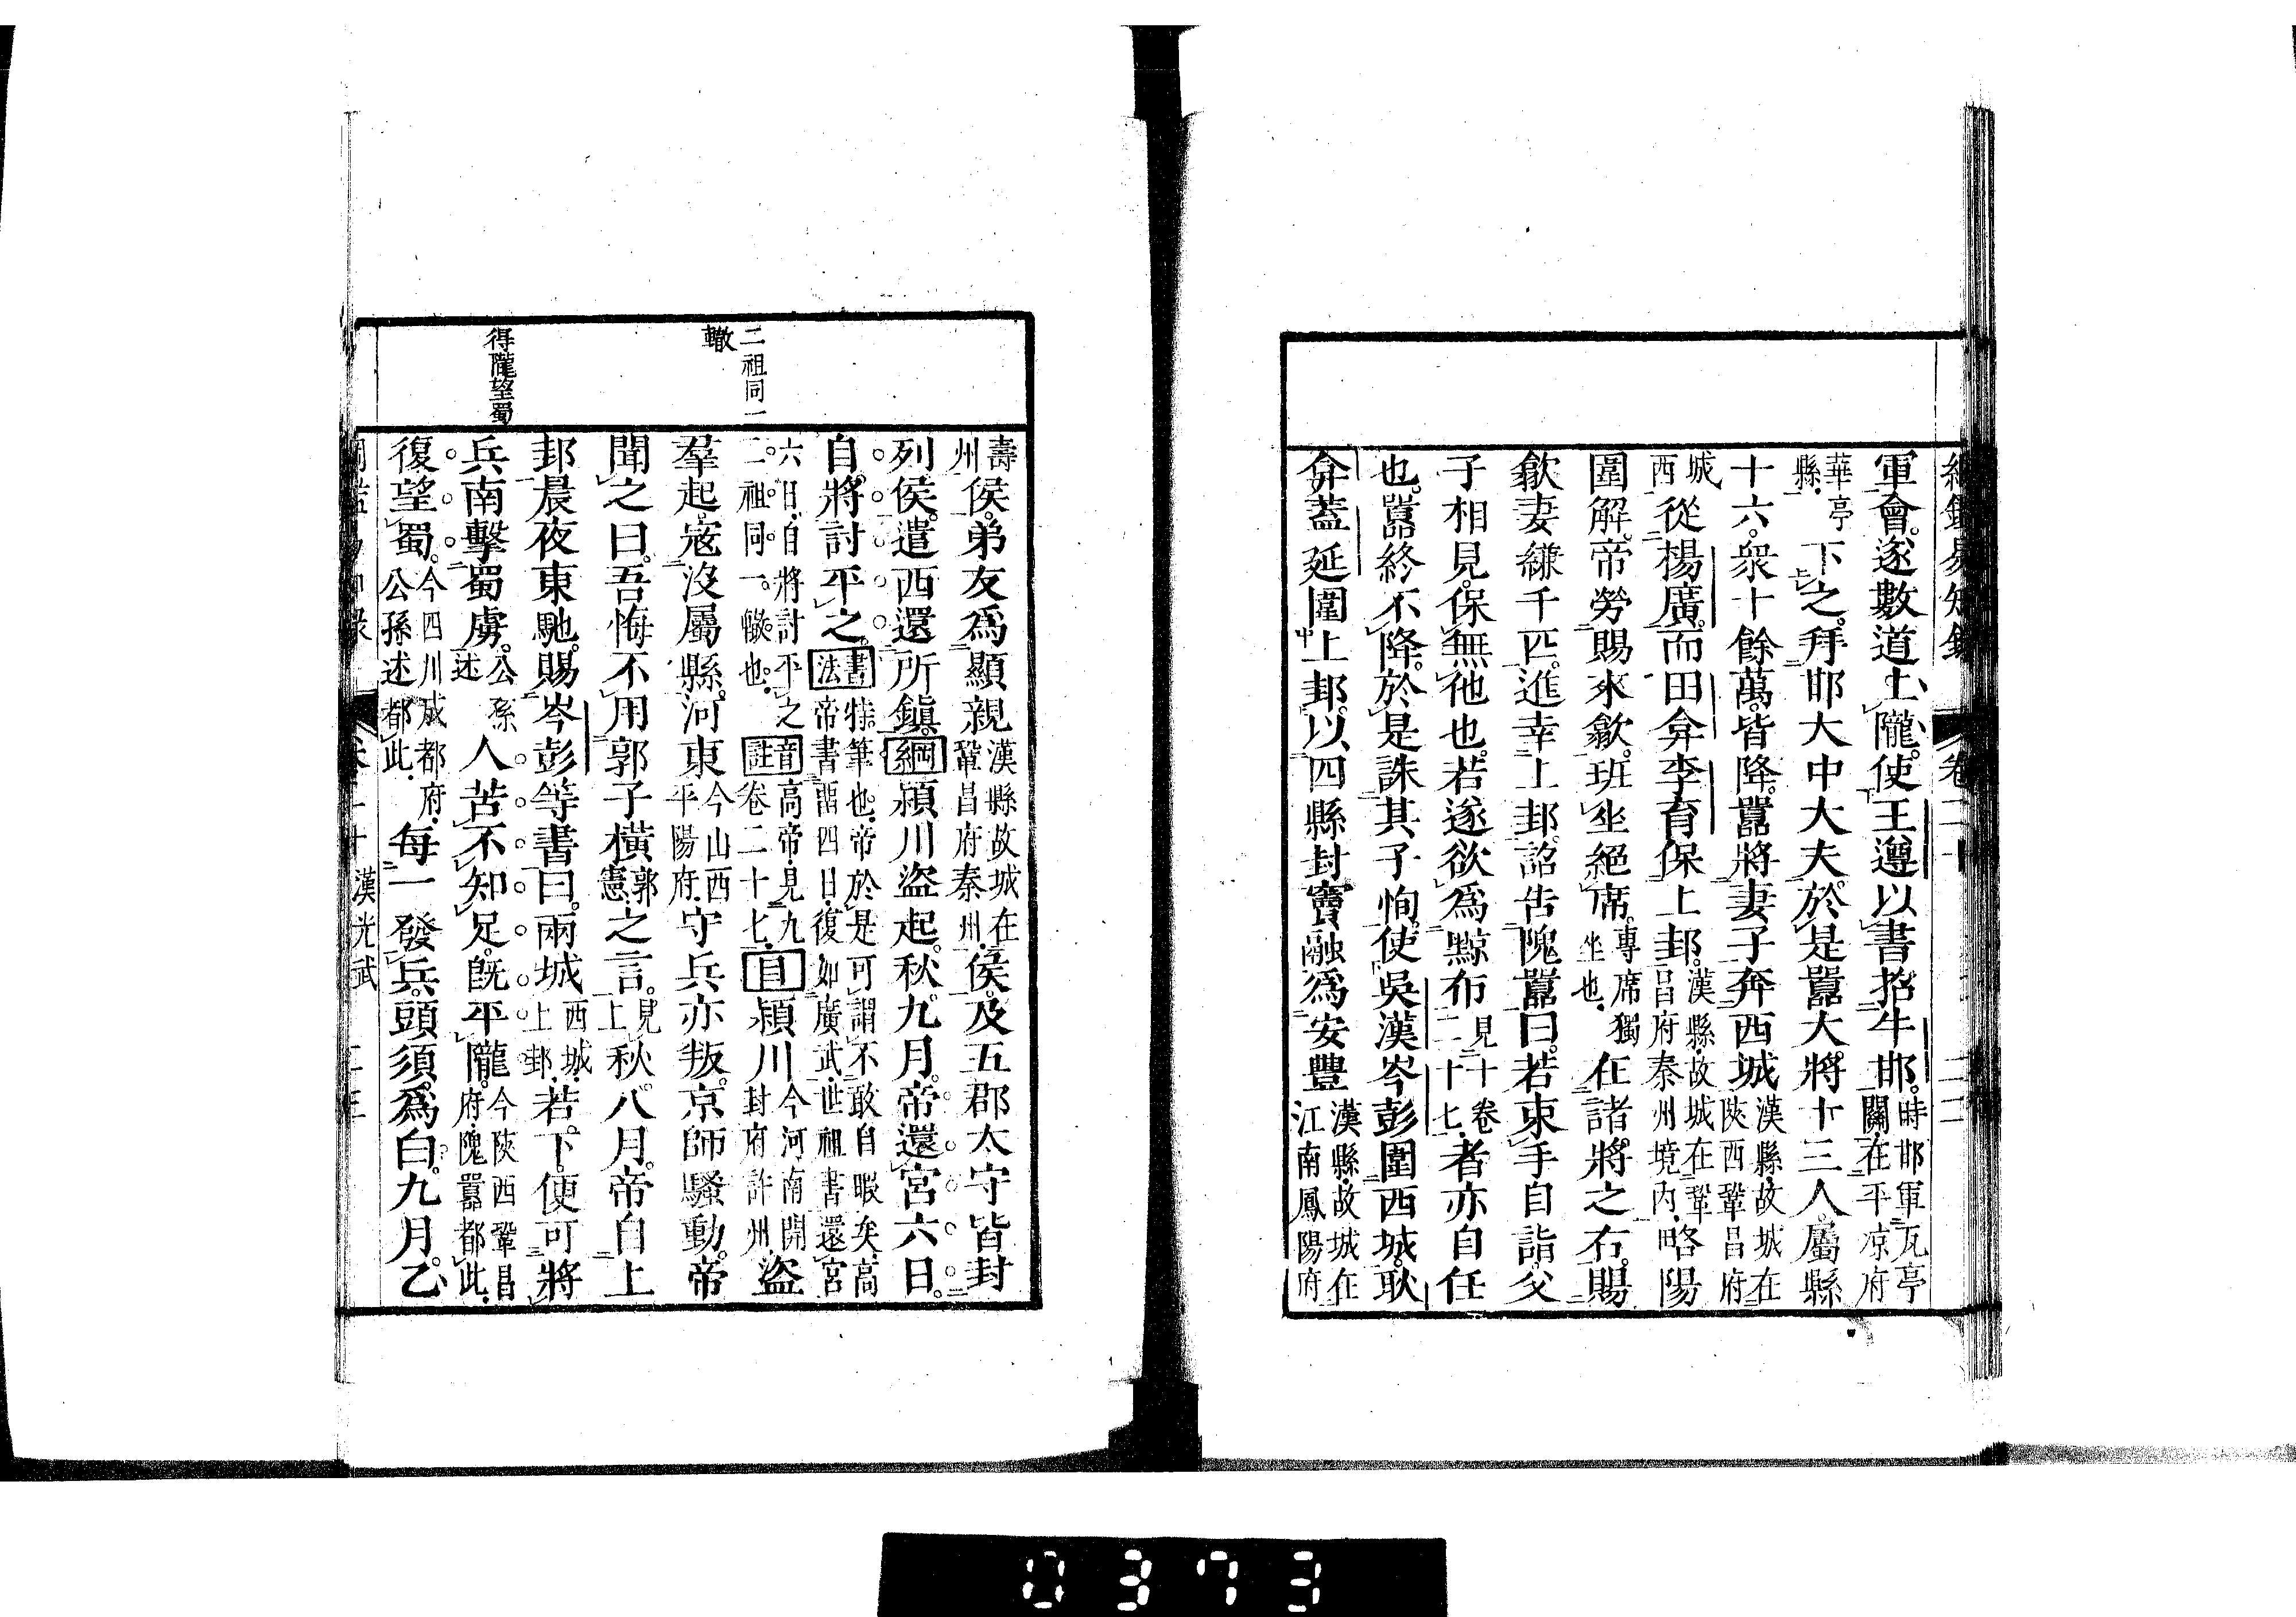 綱鑑易知錄 卷二十 二二
軍會遂數道上隴使王遵以書招牛邯時邯軍瓦亭關在平凉府
華亭縣下之拜邯大中大夫於是囂大將十三人屬縣
十六衆十餘萬皆降囂將妻子奔西城漢縣故城在陝西鞏昌府
城西從楊廣而田弇李育保上邽漢縣故城在鞏昌府秦州境內略陽
圍解帝勞賜來歙班坐絕席專席獨坐也在諸將之右賜
歙妻縑千匹進幸上邽詔告隗囂曰若束手自詣父
子相見保無他也若遂欲爲黥布見十卷二十七者亦自任
也囂終不降於是誅其子恂使吳漢岑彭圍西城耿
弇蓋延圍上邽以四縣封竇融爲安豐漢縣故城在江南鳳陽府
壽州侯弟友爲顯親漢縣故城在鞏昌府秦州侯及五郡太守皆封
列侯遣西還所鎮綱潁川盜起秋九月帝還宮六日
自將討平之書法特筆也帝於是可謂不敢自暇矣高帝書詔四日復如廣武世祖書還宮
六日自將討平之二祖同一轍也音註高帝見九卷二十七目潁川今河南開封府許州盜
羣起寇沒屬縣河東今山西平陽府守兵亦叛京師騷動帝
聞之曰吾悔不用郭子橫郭憲之言見上秋八月帝自上
邽晨夜東馳賜岑彭等書曰兩城西城上邽若下便可將
兵南擊蜀虜公孫述人苦不知足旣平隴今陝西鞏昌府隗囂都此
復望蜀今四川成都府公孫述都此每一發兵頭須爲白九月乙
二祖同一
轍
得隴望蜀
漢光武
0373